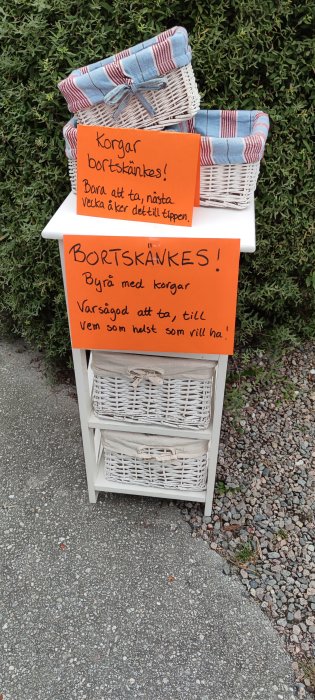 Korgar
bortskänkes!
Bara att ta, nästa
vecka åker det till tippen.
BORTSKÄNKES!
Byrå med korgar
Varsågod att ta, till
vem som helst som vill ha!